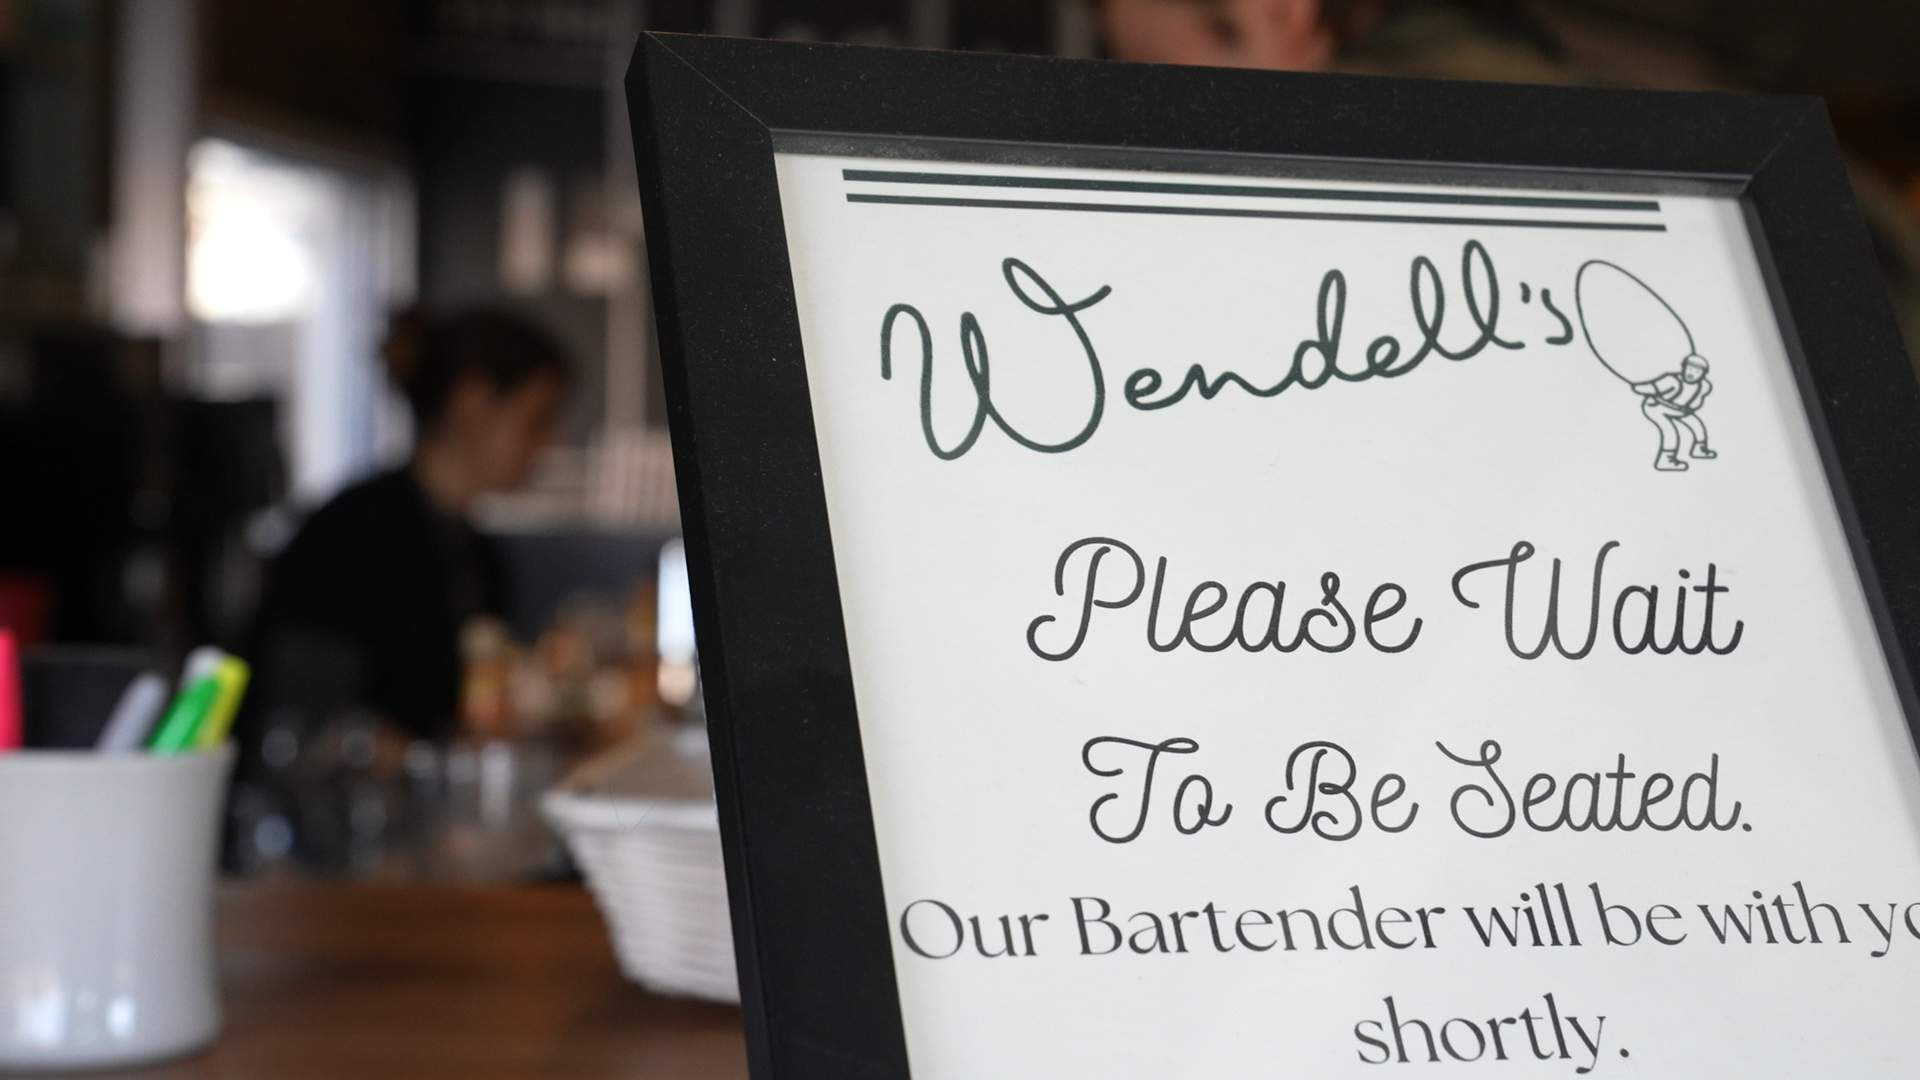 Wendell's
Please Wait
To Be Seated.
Our Bartender will be with yo
shortly.